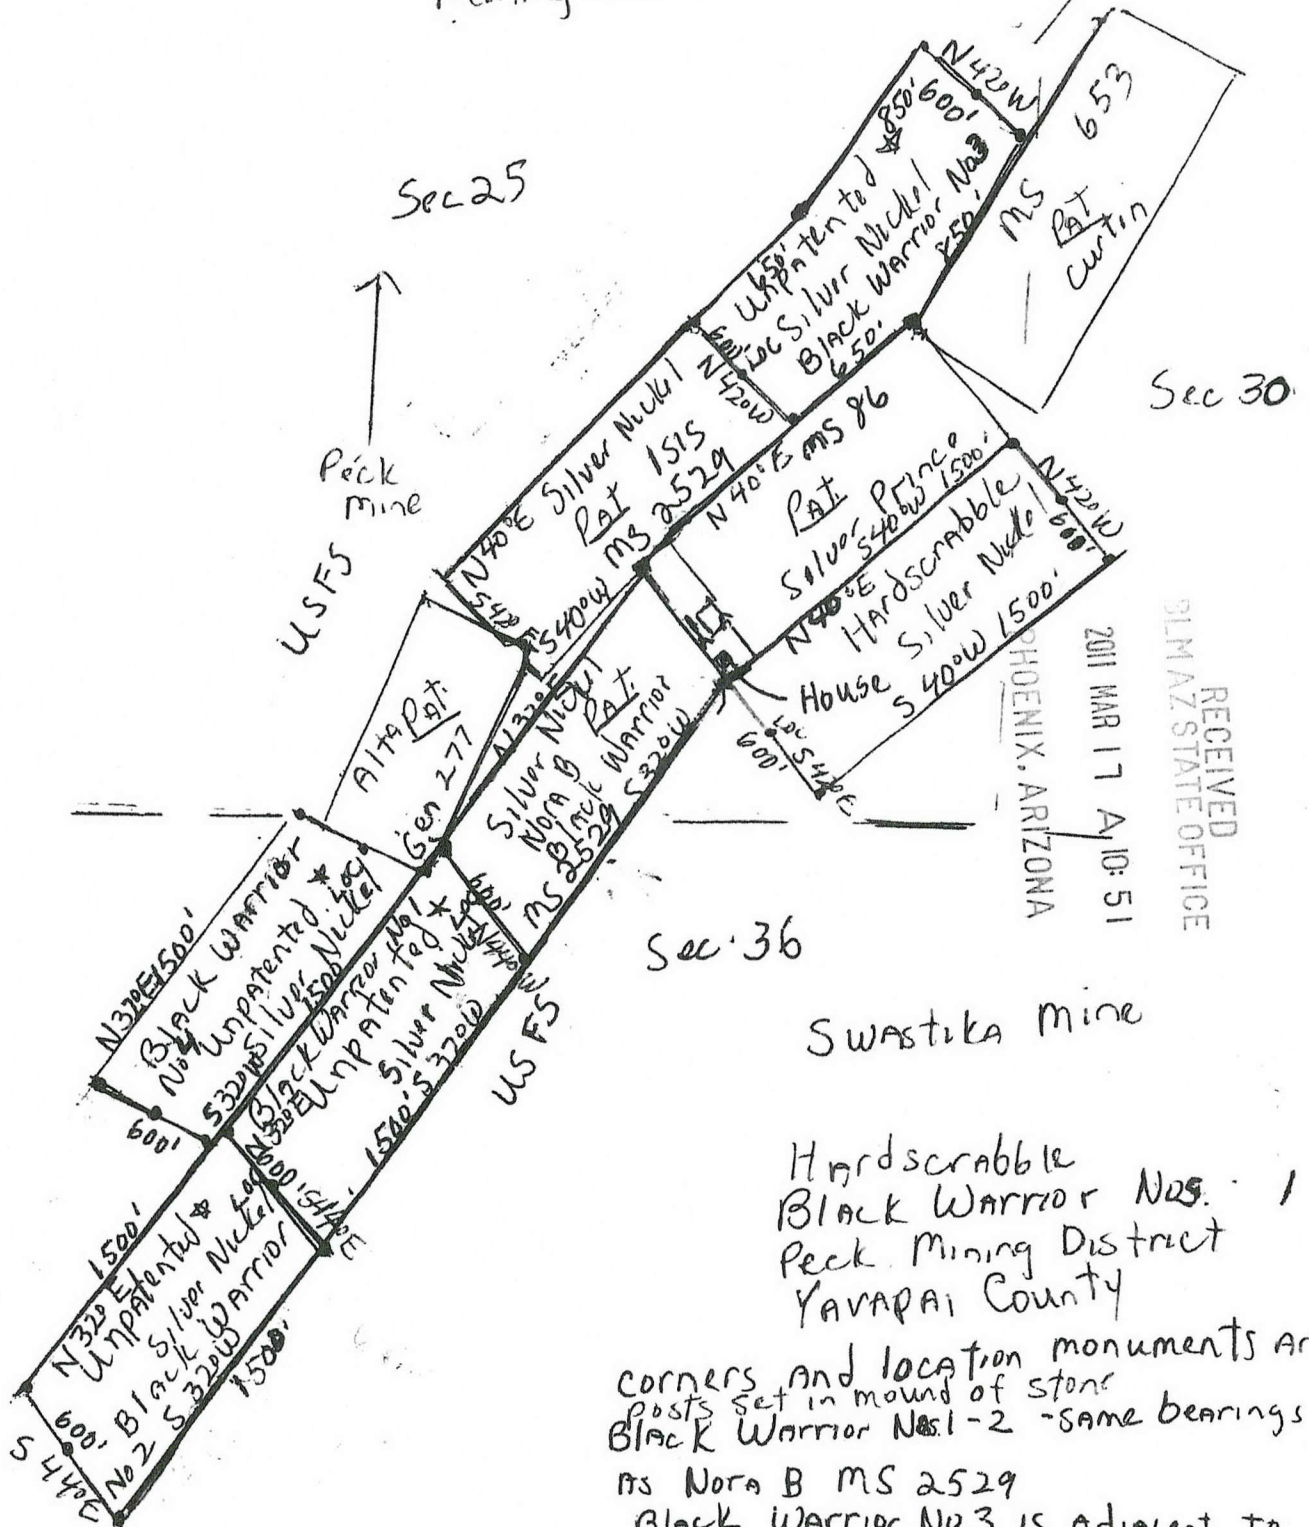 N 42° W
600'
850'
Unpatented ★
LOC Silver Nickel
Black Warrior No 3
850'
650'
650'
MS 653
PAT
Curtin
Sec 25
Peck
mine
USFS
Sec 30
600'
N 42° W
N 40° E Silver Nickel
PAT ISIS
MS 2529
S 42° E
S 40° W
N 40° E MS 86
PAT.
Silver Prince
S 40° W 1500'
N 42° W
600'
N 40° E
Hardscrabble
Silver Nickel
S 40° W 1500'
House
LOC
600'
S 42° E
RECEIVED
BLM AZ STATE OFFICE
2011 MAR 17 A 10:51
PHOENIX, ARIZONA
Alta PAT
Gen 277
N 32° E
Silver Nickel
PAT.
Nora B
Black Warrior
MS 2529 S 32° W
600'
N 44° W
Sec. 36
N 32° E 1500'
Black Warrior
No 4 Unpatented ★ Loc
Silver Nickel
S 32° W 1500'
600'
Black Warrior No 1
N 32° E Unpatented ★ Loc
Silver Nickel
1500' S 32° W
600'
S 44° E
USFS
N 32° E 1500'
Unpatented ★ Loc
Silver Nickel
Black Warrior
No 2 S 32° W
1500'
600'
S 44° E
Swastika Mine
Hardscrabble
Black Warrior Nos. 1
Peck Mining District
Yavapai County
corners and location monuments Ar
posts set in mound of stone
Black Warrior Nos. 1-2 - same bearings
As Nora B MS 2529
Black Warrior No 3 is adjacent to